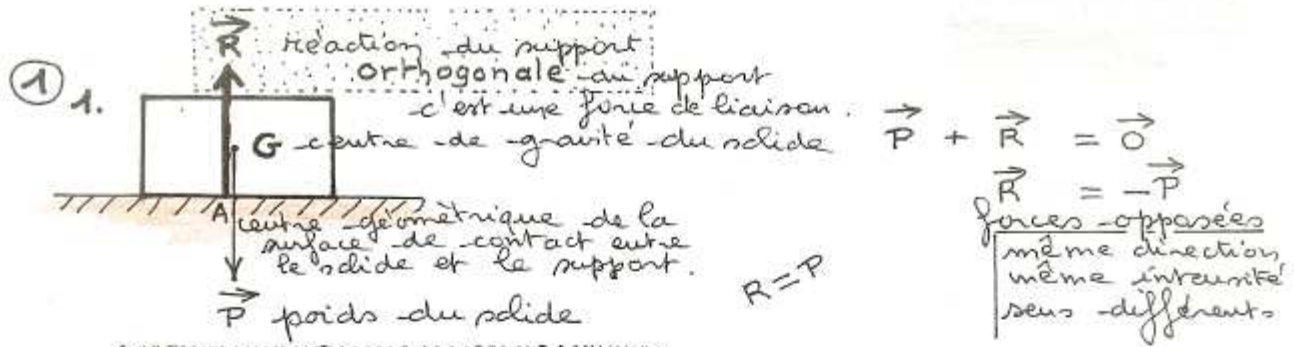 R réaction du support
orthogonale au support
① 1.
c'est une force de liaison.
G centre de gravité du solide
P + R = O
R = -P
A centre géométrique de la
surface de contact entre
le solide et le support.
P poids du solide
R=P
forces opposées
même direction
même intensité
sens différents